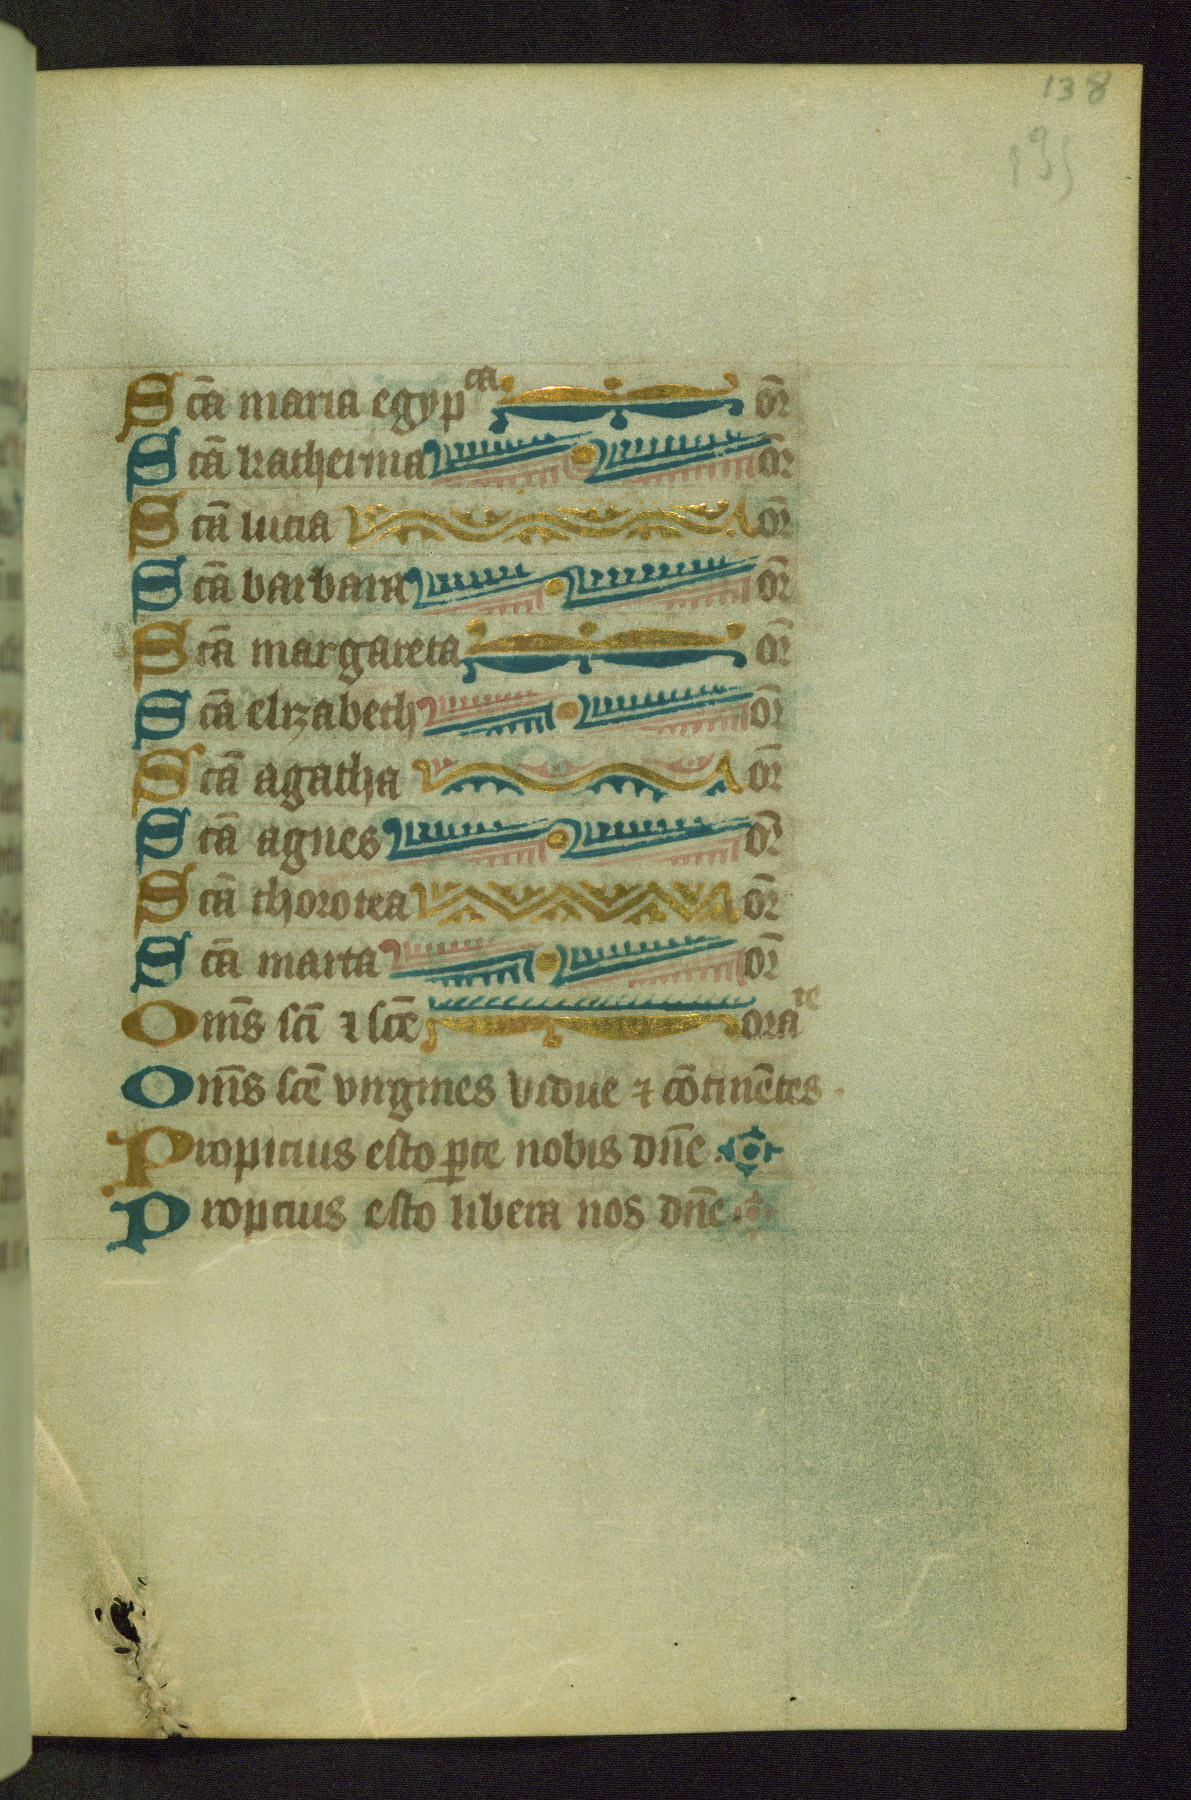 138
135
Sc̄a maria egypca or̄
Sc̄a katherina or̄
Sc̄a lucia or̄
Sc̄a barbara or̄
Sc̄a margareta or̄
Sc̄a elizabeth or̄
Sc̄a agatha or̄
Sc̄a agnes or̄
Sc̄a thorotea or̄
Sc̄a marta or̄
Om̄s sc̄i ⁊ sc̄e orate
Om̄s sc̄e virgines vidue ⁊ cōtinētes .
Propicius esto ꝑce nobis dn̄e .
Propicius esto libera nos dn̄e .